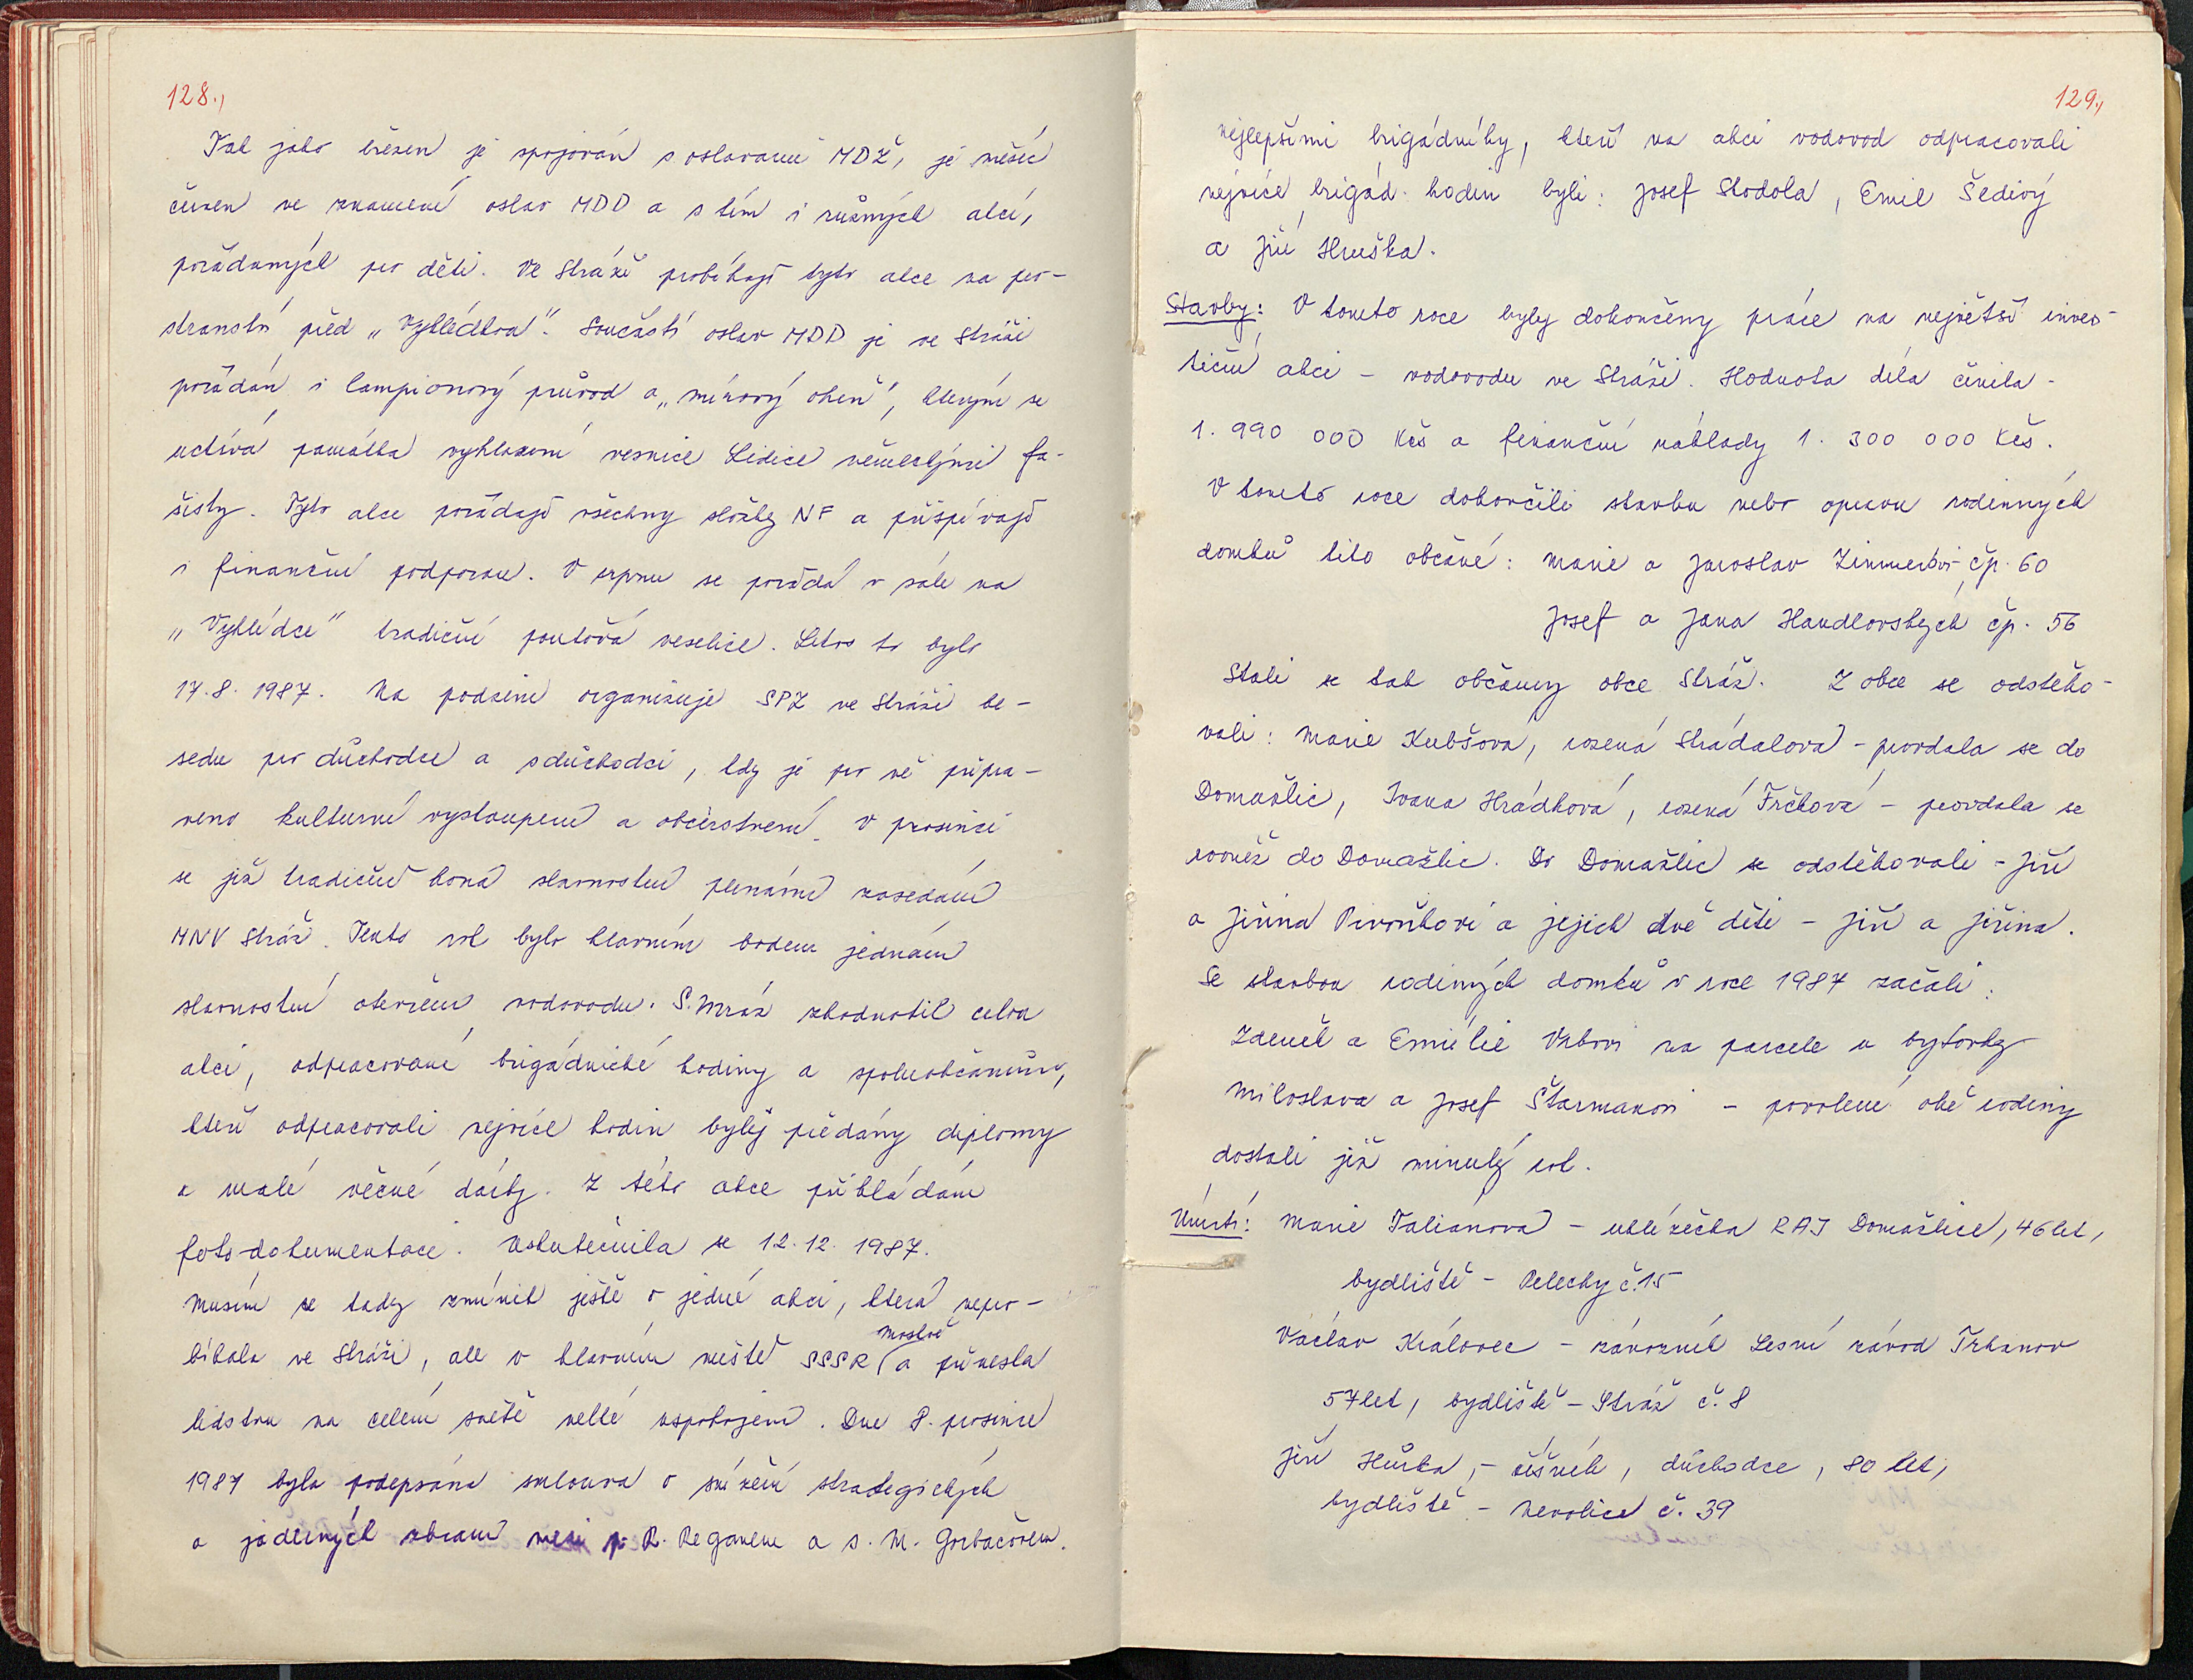 128.,
Tak jako březen je spojován s oslavami MDŽ, je měsíc
červen ve znamení oslav MDD a s tím i různých akcí,
pořádaných pro děti. Ve Stráži probíhají tyto akce na pro-
stranství před „Vyhlídkou". Součástí oslav MDD je ve Stráži
pořádán i lampionový průvod a „mírový oheň", kterým se
uctívá památka vyhlazení vesnice Lidice německými fa-
šisty. Tyto akce pořádají všechny složky NF a přispívají
i finanční podporou. V srpnu se pořádá v sále na
„Vyhlídce" tradiční pouťová veselice. Letos to bylo
17.8. 1987. Na podzim organizuje SPZ ve Stráži be-
sedu pro důchodce a s důchodci, kdy je pro ně připra-
veno kulturní vystoupení a občerstvení. V prosinci
se již tradičně koná slavnostní plenární zasedání
MNV Stráž. Tento rok bylo hlavním bodem jednání
slavnostní otevření vodovodu. S. Mráz zhodnotil celou
akci, odpracované brigádnické hodiny a spoluobčanům,
kteří odpracovali nejvíce hodin byly předány diplomy
a malé věčné dárky. Z této akce přikládám
foto-dokumentaci. Uskutečnila se 12.12. 1987.
Musím se tady zmínit ještě o jedné akci, která nepro-
bíhala ve Stráži, ale v hlavním městě SSSR Moskvě a přinesla
lidstvu na celém světě velké uspokojení. Dne 8. prosince
1987 byla podepsána smlouva o snížení strategických
a jaderných zbraní mezi p. R. Reganem a s. M. Gorbačovem.
129.,
nejlepšími brigádníky, kteří na akci vodovod odpracovali
nejvíce brigád. hodin byli: Josef Stodola, Emil Šedivý
a Jiří Hruška.
Stavby: V tomto roce byly dokončeny práce na největší inves-
tiční akci – vodovodu ve Stráži. Hodnota díla činila -
1. 990 000 Kčs a finanční náklady 1. 300 000 Kčs.
V tomto roce dokončili stavbu nebo opravu rodinných
domků tito občané: Marie a Jaroslav čp. 60
Josef a Jana Handlovských čp. 56
Stali se tak občany obce Stráž. Z obce se odstěho-
vali: Marie Kubšová, rozená Strádalová – provdala se do
Domažlic, Ivana Hrádková, rozená Frčková – provdala se
rovněž do Domažlic. Do Domažlic se odstěhovali – Jiří
a Jiřina Pivoňkovi a jejich dvě děti – Jiří a Jiřina.
Se stavbou rodiných domků v roce 1987 začali:
Zdeněk a Emílie Vrbovi na parcele u bytovky
Miloslava a Josef Štarmanovi – povolení obě rodiny
dostali již minulý rok.
Úmrtí: Marie Taliánová – uklízečka RAJ Domažlice, 46 let,
bydliště – Pelechy č.15
Václav Královec – závozník Lesní závod Trhanov
57 let, bydliště – Stráž č. 8
Jiří Hůrka, – číšník, důchodce, 80 let,
bydliště – Nevolice č. 39